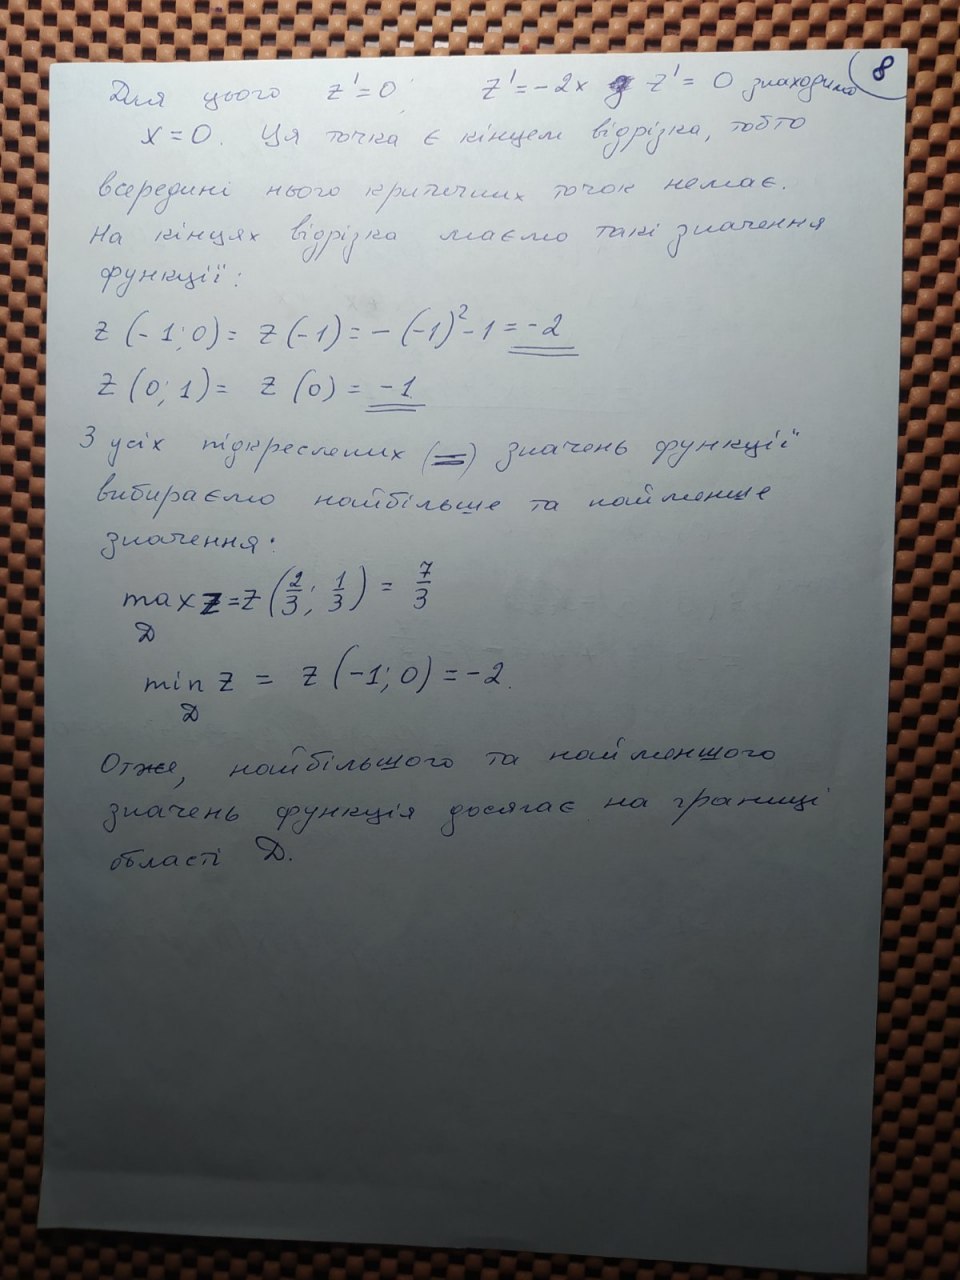 8
Для цього z' = 0. z' = -2x z' = 0 знаходимо
x = 0. Ця точка є кінцем відрізка, тобто
всередині нього критичних точок немає.
На кінцях відрізка маємо такі значення
функції:
z (-1; 0) = z (-1) = - (-1)² - 1 = -2
z (0; 1) = z (0) = -1
З усіх підкреслених (=) значень функції
вибираємо найбільше та найменше
значення:
max z = z (2/3; 1/3) = 7/3
D
min z = z (-1; 0) = -2.
D
Отже, найбільшого та найменшого
значень функція досягає на границі
області D.